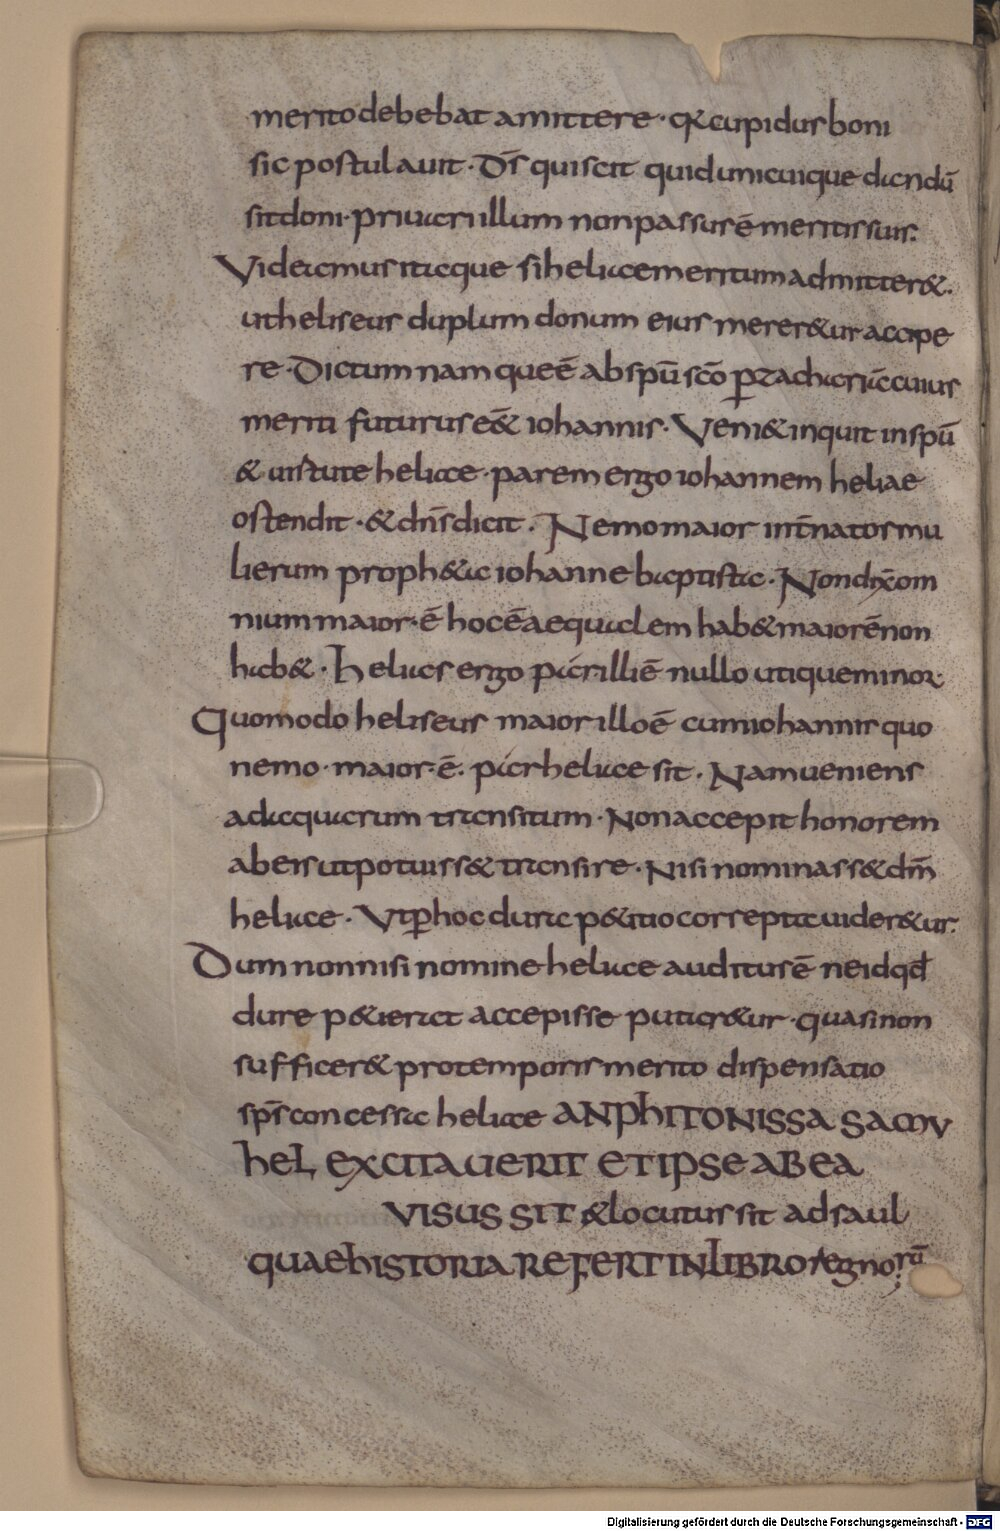 merito debebat amittere · q̶ cupidus boni
sic postulauit · Ds̄ qui scit quid unicuique dandū
sit doni · priuari illum non passus ē meritis suis.
Videamus itaque si heliae meritum admitter&.
ut heliseus duplum donum eius merer&ur accipe
re · Dictum namque ē ab spū scō p̱ zachariā cuius
meriti futurus e&̄ iohannis · Veni& inquit in spū
& uirtute heliae · parem ergo iohannem heliae
ostendit · & dn̄s dicit · Nemo maior int̄ natos mu
lierum proph&a iohanne baptista · Non dix̄ om
nium maior ē hoc ē aequalem hab& maiorē non
hab& · Helias ergo par illi ē nullo utique minor
Quomodo heliseus maior illo ē cum iohannis quo
nemo maior ē · par heliae sit · Nam ueniens
ad aquarum transitum · Non accepit honorem
ab eis ut potuiss& transire · Nisi nominass& dm̄
heliae · Vt p̱ hoc dura p&itio correpta uider&ur.
Dum non nisi nomine heliae auditus ē ne id qd̄
dure p&ierat accepisse putar&ur · quasi non
sufficer& pro temporis merito dispensatio
sp̄s concessa heliae AN PHITONISSA SAMV
HEL EXCITAUERIT ET IPSE AB EA
VISUS SIT & locutus sit ad saul
QUAE HISTORIA REFERT IN LIBRO regnorū
Digitalisierung gefördert durch die Deutsche Forschungsgemeinschaft - DFG